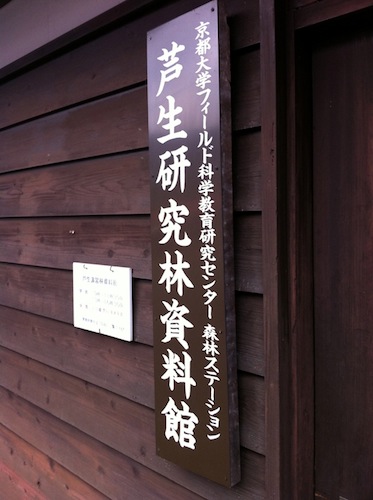 京都大学フィールド科学教育研究センター 森林ステーション
芦生研究林資料館